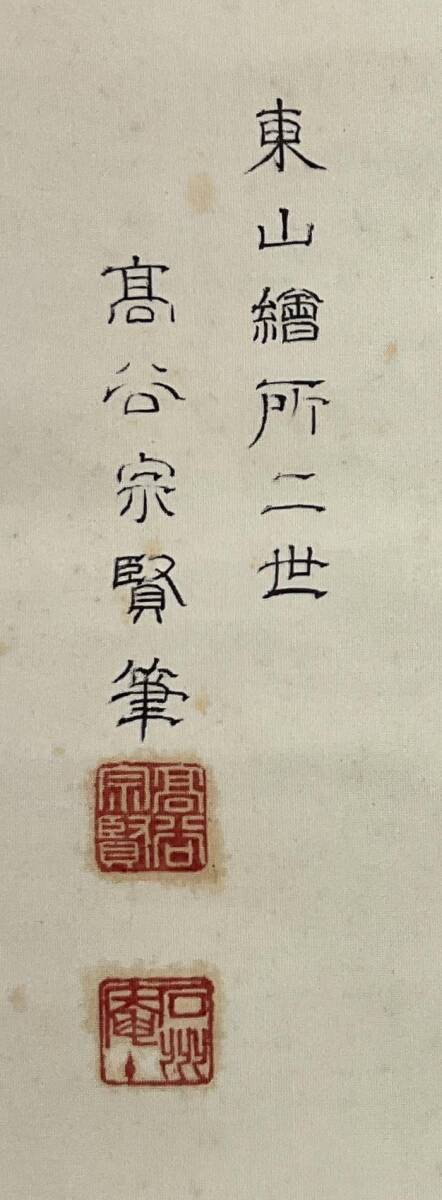 東山繪所二世
髙谷宗賢筆
髙谷宗賢
石州庵